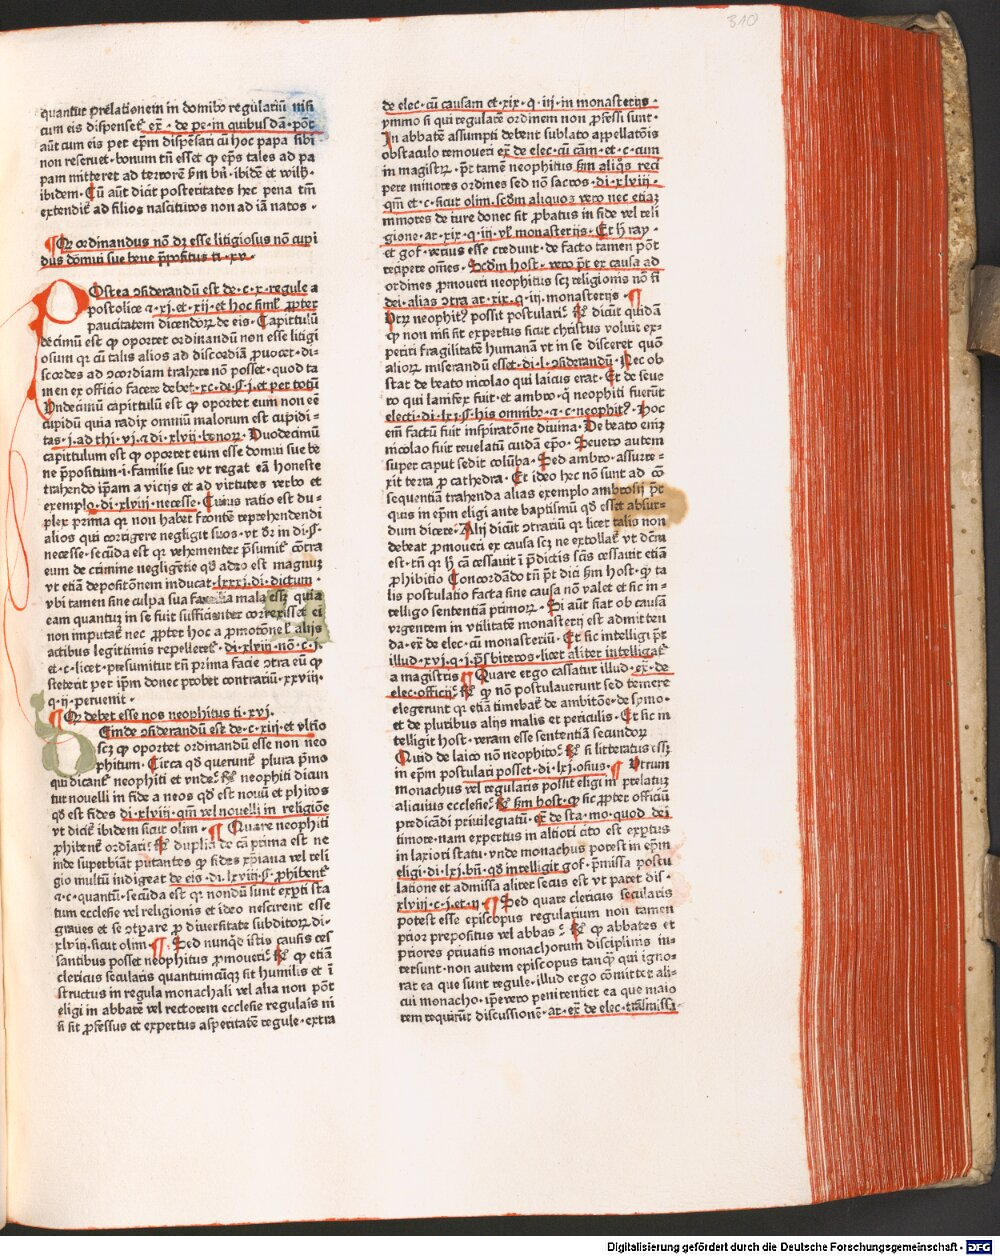 310
quantur prelationem in domibꝰ regulariū nisi
cum eis dispensetᷣ ex̄ · de pe · in quibus dā · pōt
aūt cum eis per ep̄m dispēsari cū hoc papa sibi
non reseruet · bonum tn̄ esset ꝙ ep̄s tales ad pa
pam mitteret ad terrorē ẜm bñ · ibidē et wilh ·
ibidem · Cū aūt dicit̉ posteritates hec pena tm̄
extendit̉ ad filios nascituros non ad iā natos ·
¶ Qꝛ ordinandus nō dꝫ esse litigiosus nō cupi
dus domui sue bene p̄positus ti · xv ·
POstea ꝯsiderandū est de · c · x · regule a
postolice ⁊ · xj · et · xij · et hoc simꝉ ꝓpter
paucitatem dicendoꝝ de eis · Capitulū
decimū est ꝙ oportet ordinandū non esse litigi
osum qꝛ cū talis alios ad discordiā ꝓuocet · di ·
scordes ad ꝯcordiam trahere nō posset · quod ta
men ex officio facere debet · xc · di · § · j · et per totū
Vndecimū capitulū est ꝙ oportet eum non eē
cupidū quia radix omniū malorum est cupidi ·
tas · j · ad thi · vj · ⁊ di · xlvij · bonoꝝ · Duodecimū
capitulum est ꝙ oportet eum esse domui sue be
ne p̄positum · i · familie sue vt regat eā honeste
trahendo ip̄am a vicijs et ad virtutes verbo et
exemplo · di · xlviij · necesse · Cuius ratio est du ·
plex prima qꝛ non habet frontē reprehendendi
alios qui corrigere negligit suos · vt dr̄ in di · § ·
necesse · secūda est qꝛ vehementer p̄sumit̉ cōtra
eum de crimine negligētie qd̓ adeo est magnuꝫ
vt etiā depositōnem inducat · lxxxj · di · dictum ·
vbi tamen sine culpa sua familia mala esꝫ quia
eam quantuꝫ in se fuit sufficiēter correxisset ei
non imputat̉ nec ꝓpter hoc a ꝓmotōne ꝉ alijs
actibus legittimis repelleret̉ · di · xlviij · nō · c · j ·
et · c · licet · presumitur tn̄ prima facie ꝯtra eū ꝙ
steterit per ip̄m donec probet contrariū · xxviij ·
q · ij · peruenit ·
¶ Qꝛ debet esse nos neophitus ti · xvj ·
DEinde ꝯsiderandū est de · c · xiij · et vltīo
scꝫ ꝙ oportet ordinandū esse non neo
phitum · Circa qd̓ querunt̉ plura p̄mo
qui dicant̉ neophiti et vnde · Rn̄ · neophiti dicun
tur nouelli in fide a neos qd̓ est nouū et phitos
qd̓ est fides di · xlviij · qm̄ vel nouelli in religiōe
vt dicit̉ ibidem sicut olim · ¶ Quare neophiti
ꝓhibent̉ ordīari · Rn̄ · duplici de cā prima est ne
inde superbiāt putantes ꝙ fides xp̄iana vel reli
gio multū indigeat de eis · di · lxviij · § · ꝓhibent̉
⁊ · c · quantū · secūda est qꝛ nondū sunt exꝑti sta
tum ecclesie vel religionis et ideo nescirent esse
graues et se ꝯtpare ꝓ diuersitate subditoꝝ di ·
xlviij · sicut olim · ¶ Sed nunqd̓ istis causis ces
santibus posset neophitus ꝓmoueri · Rn̄ · ꝙ etiā
clericus secularis quantumcūqꝫ sit humilis et ī
structus in regula monachali vel alia non pōt
eligi in abbatē vel rectorem ecclesie regulais ni
si sit ꝓfessus et expertus asperitatē regule · extra
de elec · cū causam et · xix · q · iij · in monasterijs ·
ymmo si qui regularē ordinem non ꝓfessi sunt ·
In abbatē assumpti debent sublato appellatōis
obstaculo remoueri ex̄ de elec · cū cām · et · c · cum
in magistꝝ · pt̄ tamē neophitus ẜm aliqͦs reci
pere minores ordines sed nō sacros · di · xlviij ·
qm̄ et · c · sicut olim · scdm̄ aliquos vero nec etiaꝫ
minores de iure donec sit ꝓbatus in fide vel reli
gione · ar · xix · q · iij · vꝉ monasterijs · Et h̓ ray ·
et gof · verius esse credunt · de facto tamen pōt
recipere om̄es · Scdm̄ host · vero pt̄ ex causa ad
ordines ꝓmoueri neophitus scꝫ religionis nō fi
dei · alias ꝯtra ar · xix · q · iij · monasterijs · ¶
Vtꝝ neophitꝰ possit postulari · Rn̄ · dicūt quidā
ꝙ non nisi sit expertus sicut christus voluit ex ·
periri fragilitatē humanā vt in se disceret quō
alioꝝ miserandū esset · di · l · ꝯsiderandū · Nec ob
stat de beato nicolao qui laicus erat · Et de seue
ro qui lanifex fuit · et ambro · q̄ neophiti fuerūt
electi · di · lxj · § · his omnibꝰ · ⁊ · c · neophitꝰ · Hoc
em̄ factū fuit inspiratōne diuina · De beato emꝫ
nicolao fuit reuelatū cuidā ep̄o · Seuero autem
super caput sedit colūba · Sed ambro · assurre ·
xit terra ꝓ cathedra · Et ideo hec nō sunt ad cō
sequentiā trahenda alias exemplo ambrosij pt̄
quis in ep̄m eligi ante baptismū qd̓ esset absur ·
dum dicere · Alij dicūt ꝯtrariū qꝛ licet talis non
debeat ꝓmoueri ex causa scꝫ ne extollat̉ vt dcm̄
est · tn̄ qꝛ h̓ cā cessauit ī p̄dictis scīs cessauit etiā
ꝓhibitio Concordādo tn̄ pt̄ dici ẜm host · ꝙ ta
lis postulatio facta sine causa nō valet et sic in ·
telligo sententiā primoꝝ · Si aūt fiat ob causā
vrgentem in vtilitatē monasterij est admitten
da · ex̄ de elec · cū monasteriū · Et sic intelligi pt̄
illud · xvj · q · j · p̄sbiteros · licet aliter intelligat̉
a magistris ¶ Quare ergo cassatur illud · ex̄ · de
elec · officij · Rn̄ · ꝙ nō postulauerunt sed temere
elegerunt qꝛ etiā timebat̉ de ambitōe · de symo ·
et de pluribus alijs malis et periculis · Et sic in
telligit host · veram esse sententiā secundoꝝ
Quid de laico nō neophitoꝰ · Rn̄ · si litteratus esꝫ
in ep̄m postulari posset · di · lxj · osius · ¶ Vtrum
monachus vel regularis possit eligi in prelatuꝫ
alicuius ecclesie · Rn̄ · ẜm host · ꝙ sic ꝓpter officiū
predicādi priuilegiatū · ex̄ de sta · mo · quod dei
timore · nam expertus in altiori cito est exꝑtus
in laxiori statu · vnde monachus potest in ep̄m
eligi · di · lxj · bn̄ · qd̓ intelligit gof · p̄missa postu
latione et admissa aliter secus est vt patet dis ·
xlviij · c · j · et · ij · ¶ Sed quare clericus secularis
potest esse episcopus regularium non tamen
prior prepositus vel abbas · Rn̄ · ꝙ abbates et
priores priuatis monachorum disciplinis in ·
tersunt · non autem episcopus tanqͣ qui igno ·
rat ea que sunt regule · illud ergo cōmittet ali ·
cui monacho · ip̄e vero penitentiet ea que maio
rem requirūt discussionē · ar · ex̄ de elec · trāsmissā ·
Digitalisierung gefördert durch die Deutsche Forschungsgemeinschaft - DFG